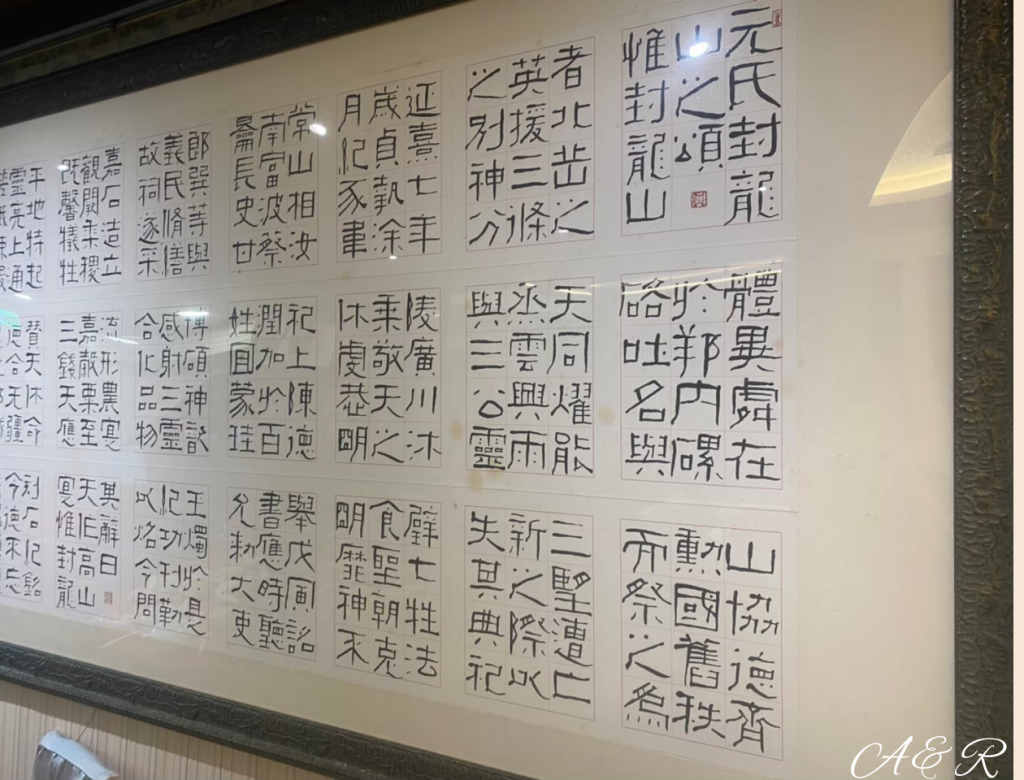 元氏封龍
山之頌
惟封龍山
者北岳之
英援三條
之別神分
體異處在
於邦內磥
硌吐名與
天同燿能
烝雲興雨
與三公靈
山協德齊
勳國舊秩
而祭之為
三望遭亡
新之際以
失其典祀
延熹七年
歲貞執涂
月紀豕韋
常山相汝
南富波蔡
長史甘
陵廣川沐
乘敬天之
休虔恭明
祀上陳德
潤加於百
姓宜蒙珪
璧七牲法
食聖朝克
明靡神不
舉戊寅詔
書應時聽
允敕大吏
郎巽等與
義民脩繕
故祠遂采
嘉石造立
觀闕黍稷
既馨犧牲
博碩神歆
感射三靈
合化品物
流形農寔
嘉穀粟至
三錢天應
王燭於是
紀功刊勒
以炤令問
其辭曰
天作高山
寔惟封龍
平地特起
靈亮上通
贊天休命
德合无疆
刻石紀銘
令德不忘
A & R